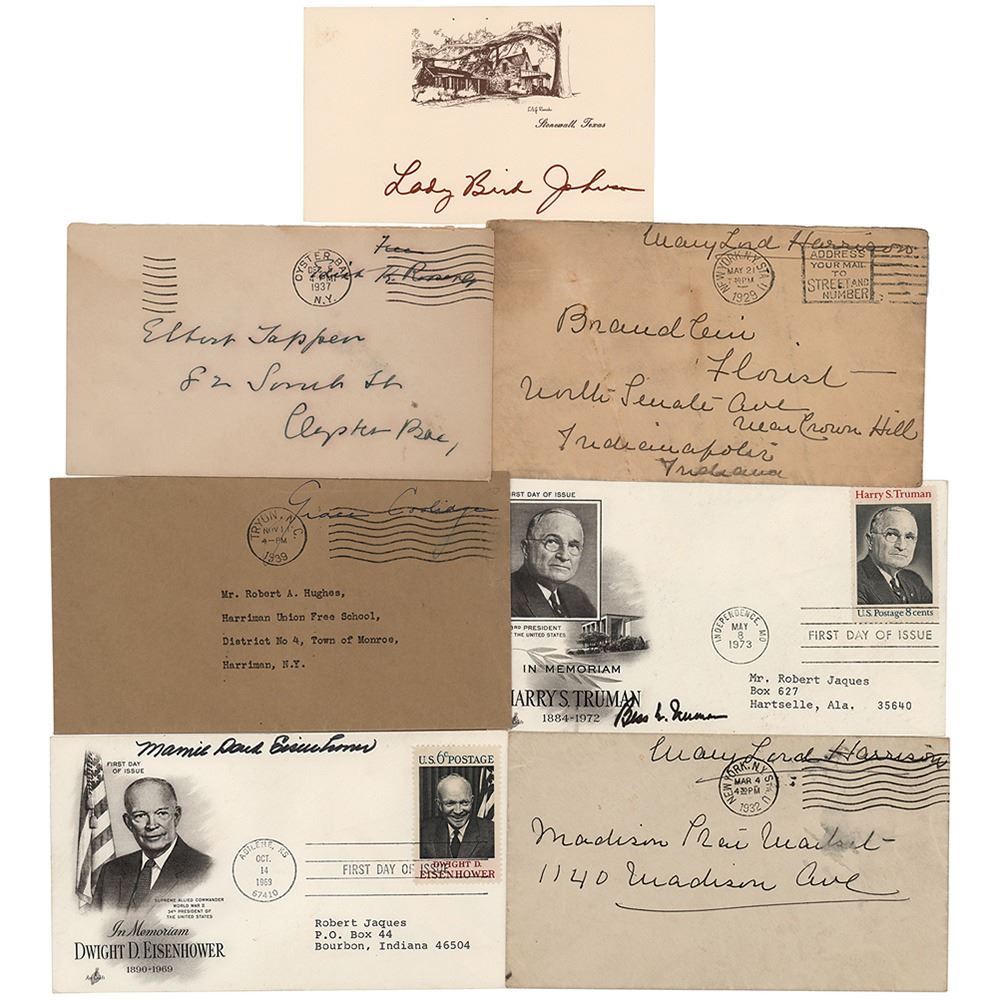 LBJ Ranch
Stonewall, Texas
Lady Bird Johnson
Free
Edith K. Roosevelt
OYSTER BAY
1937
N.Y.
Elbert Tappen
82 South St
Oyster Bay,
Mary Lord Harrison
NEW YORK, N.Y. STA. U
MAY 21
PM
1929
ADDRESS
YOUR MAIL
TO
STREET AND
NUMBER
Florist
North Senate Ave
near Crown Hill
Indianapolis
Indiana
Grace Coolidge
TRYON, N.C.
NOV 11
4-PM
1939
Mr. Robert A. Hughes,
Harriman Union Free School,
District No 4, Town of Monroe,
Harriman, N.Y.
RST DAY OF ISSUE
Harry S. Truman
U.S. Postage 8 cents
3RD PRESIDENT
F THE UNITED STATES
INDEPENDENCE, MO
MAY
8
1973
FIRST DAY OF ISSUE
IN MEMORIAM
HARRY S. TRUMAN
1884-1972
Bess W. Truman
Mr. Robert Jaques
Box 627
Hartselle, Ala. 35640
Mamie Doud Eisenhower
FIRST DAY
OF ISSUE
U.S. 6c POSTAGE
DWIGHT D.
EISENHOWER
ABILENE, KS
OCT.
14
1969
67410
FIRST DAY OF ISSUE
SUPREME ALLIED COMMANDER
WORLD WAR II
34th PRESIDENT OF
THE UNITED STATES
In Memoriam
DWIGHT D. EISENHOWER
1890-1969
ArtCraft
Robert Jaques
P.O. Box 44
Bourbon, Indiana 46504
Mary Lord Harrison
NEW YORK, N.Y. STA. U
MAR 4
PM
1932
Madison
1140 Madison Ave